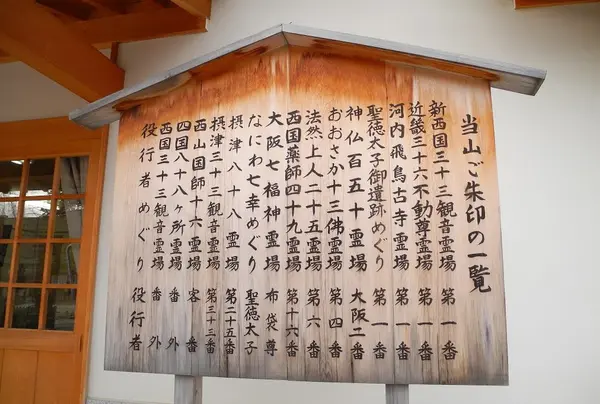 当山ご朱印の一覧
新西国三十三観音霊場 第一番
近畿三十六不動尊霊場 第一番
河内飛鳥古寺霊場 第一番
聖徳太子御遺跡めぐり 第一番
神仏百五十霊場 大阪二
おおさか十三佛霊場 第四番
法然上人二十五霊場 第六番
西国薬師四十九霊場 第十六番
大阪七福神霊場 布袋尊
なにわ七幸めぐり 聖徳太子
摂津八十八霊場 第二十五番
摂津三十三観音霊場 第三十三番
西山国師十六霊場 客番
四国八十八ヶ所霊場 番外
西国三十三観音霊場 番外
役行者めぐり 役行者